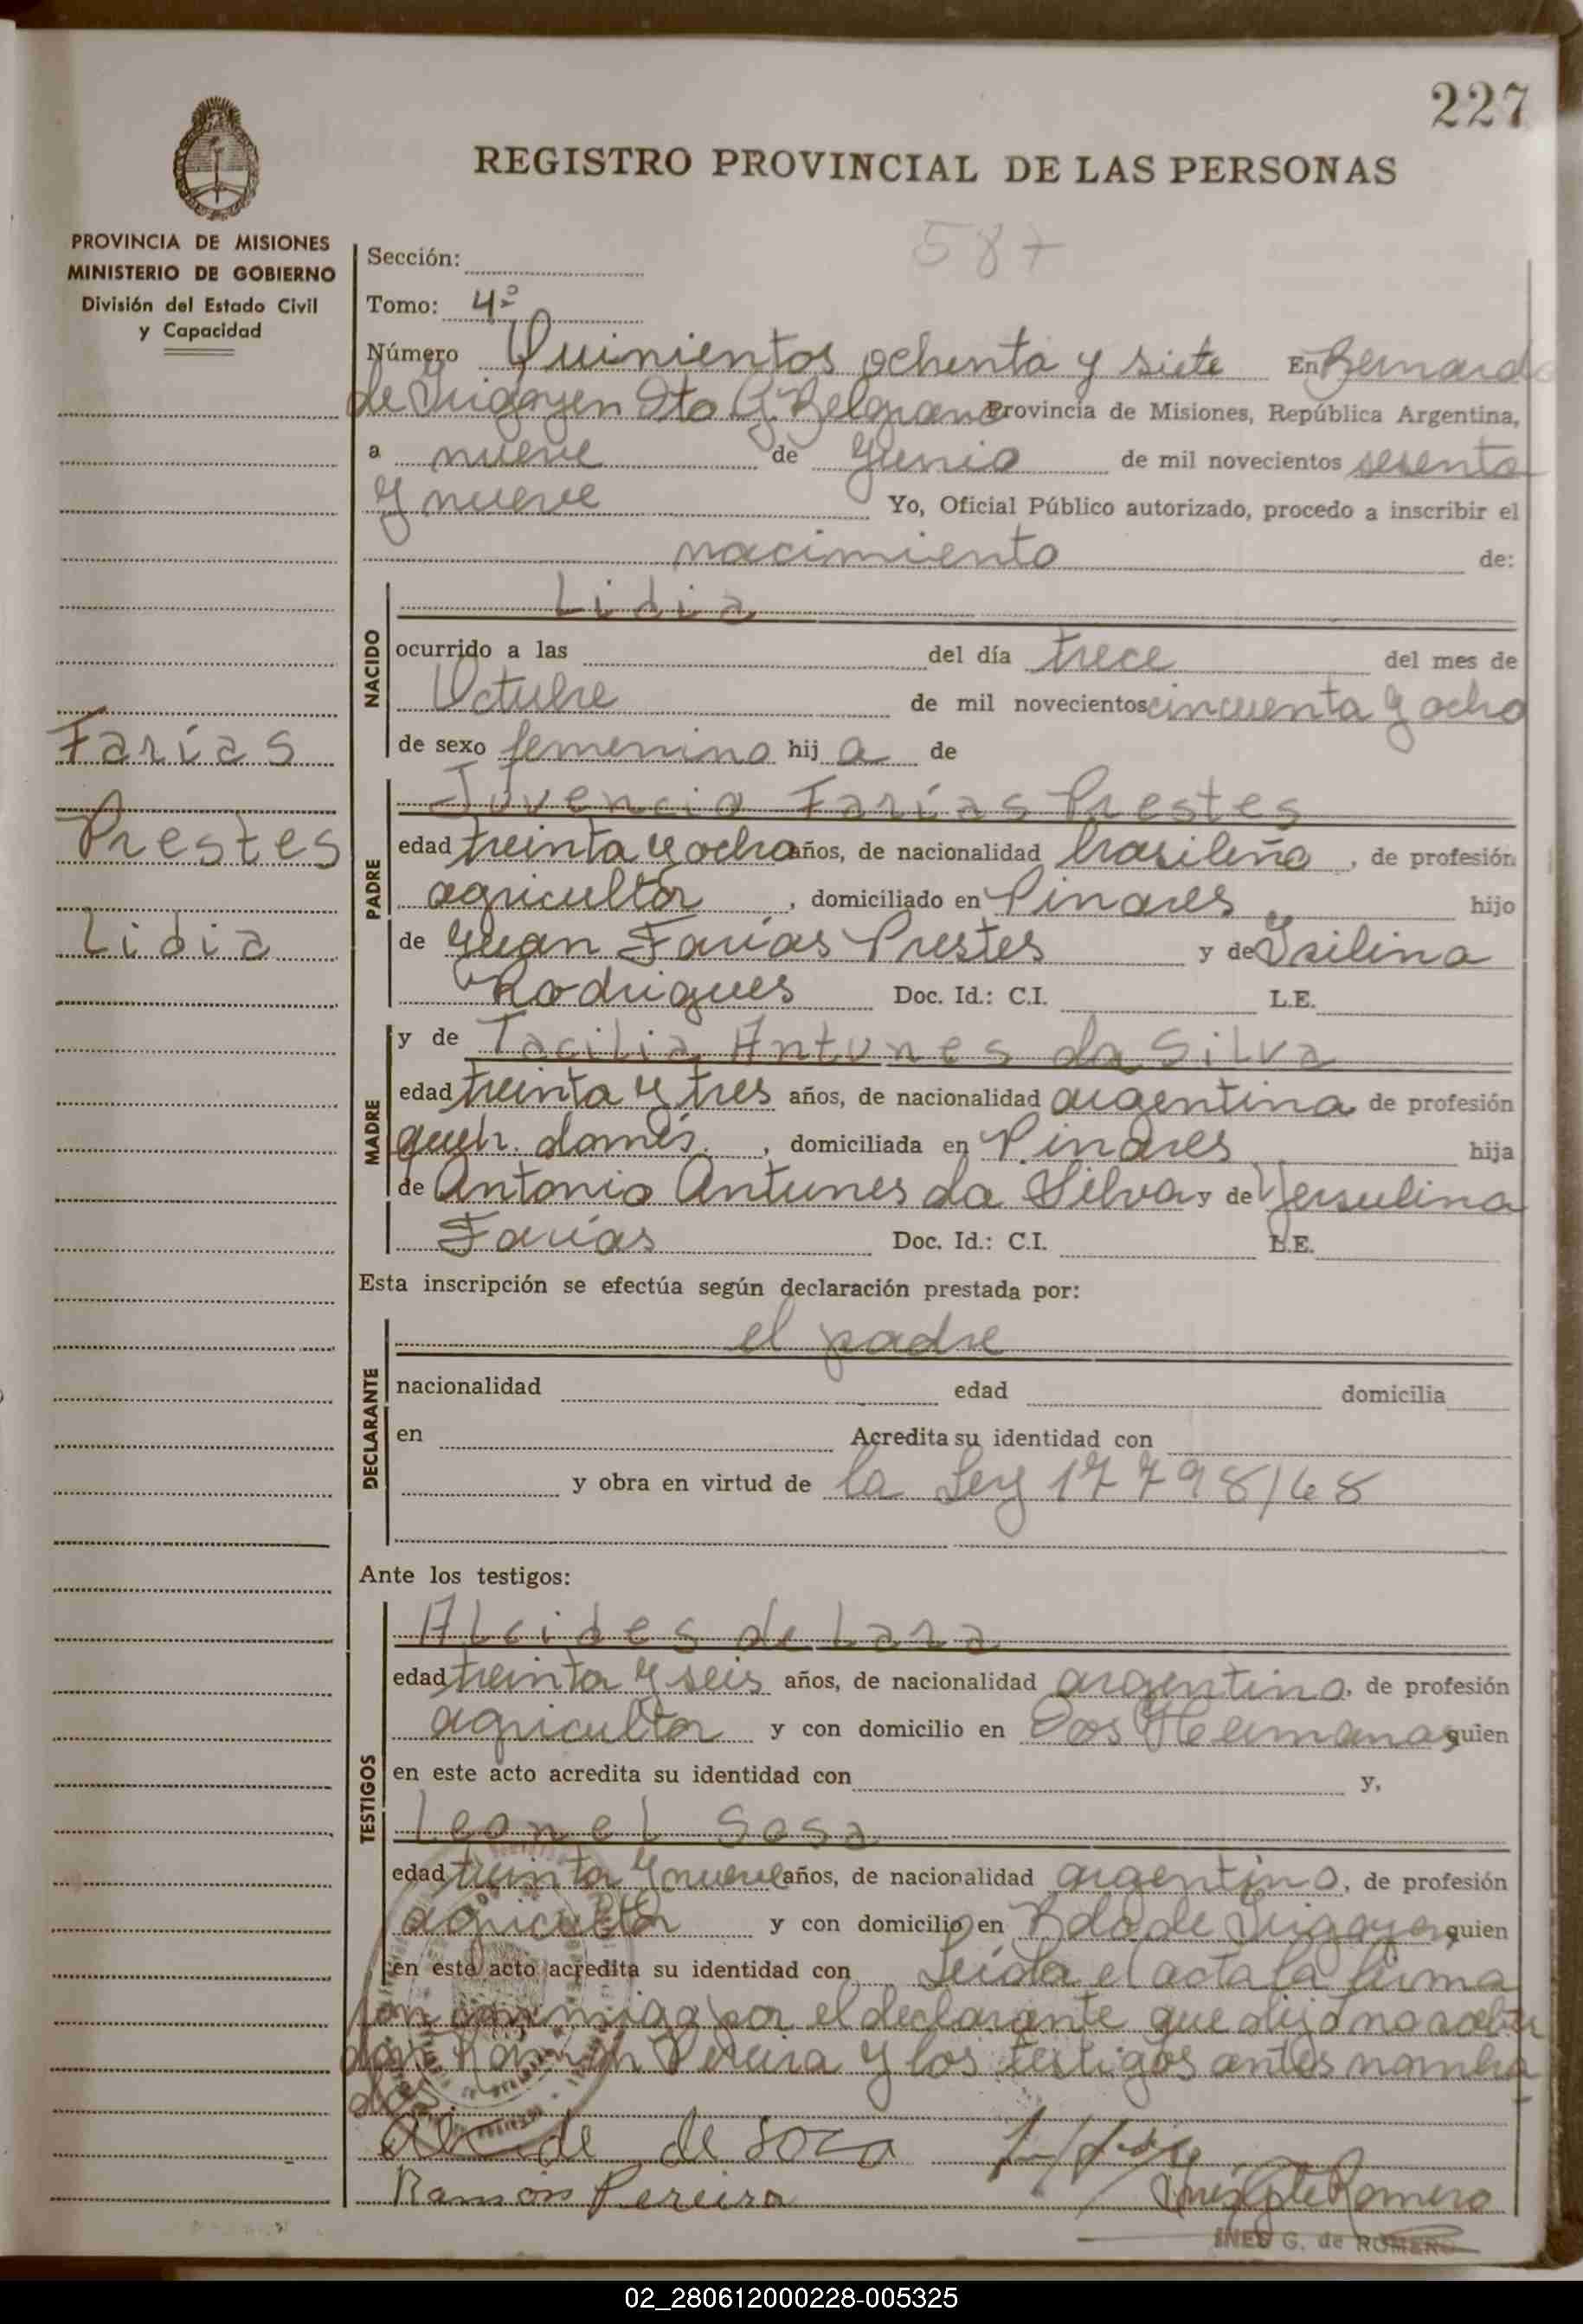 227
REGISTRO PROVINCIAL DE LAS PERSONAS
PROVINCIA DE MISIONES
MINISTERIO DE GOBIERNO
División del Estado Civil
y Capacidad
587
Sección:
Tomo: 4º
Número Quinientos ochenta y siete En Bernardo
de Irigoyen Dto G. Belgrano Provincia de Misiones, República Argentina,
a nueve de Junio de mil novecientos sesenta
y nueve Yo, Oficial Público autorizado, procedo a inscribir el
nacimiento de:
NACIDO
Lidia
ocurrido a las del día trece del mes de
Octubre de mil novecientos cincuenta y ocho
de sexo femenino hij a de
Farías
Prestes
Lidia
PADRE
Juvencio Farías Prestes
edad treinta y ocho años, de nacionalidad brasileña, de profesión
agricultor, domiciliado en Pinares hijo
de Juan Farías Prestes y de Isilina
Rodrigues Doc. Id.: C.I. L.E.
MADRE
y de Tacilia Antunes da Silva
edad treinta y tres años, de nacionalidad argentina de profesión
queh. domés., domiciliada en Pinares hija
de Antonio Antunes da Silva y de Jersulina
Farías Doc. Id.: C.I. L.E.
Esta inscripción se efectúa según declaración prestada por:
DECLARANTE
el padre
nacionalidad edad domicilia
en Acredita su identidad con
y obra en virtud de la Ley 17798/68
Ante los testigos:
TESTIGOS
Alcides de Lara
edad treinta y seis años, de nacionalidad argentino, de profesión
agricultor y con domicilio en Dos Hermanas quien
en este acto acredita su identidad con y,
Leonel Sosa
edad treinta y nueve años, de nacionalidad argentino, de profesión
agricultor y con domicilio en Bdo de Irigoyen, quien
en este acto acredita su identidad con Leída el acta la firma
por el declarante que dijo no saber
Ramón Pereira y los testigos antes nombra
dos
de
Ramón Pereira Inés G de Romero
INES G. de ROMERO
02_280612000228-005325